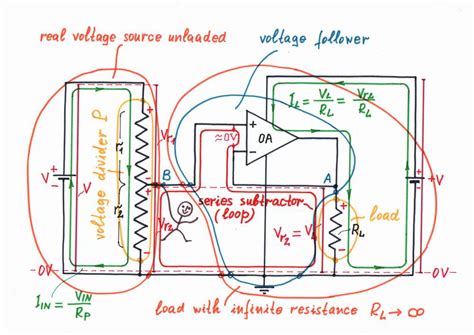 real voltage source unloaded
voltage follower
I_L = V_L/R_L = V_r2/R_L
voltage divider P
r1
r2
V_r1
V_r2
+
-
V
+
-
OA
≈0V
B
A
series subtractor
(loop)
V_r2 = V_L
R_L
load
+
-
+V
-0V
0V-
I_IN = V_IN/R_P
load with infinite resistance R_L → ∞